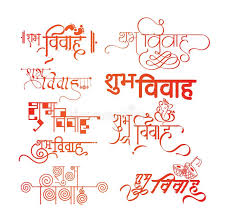 शुभ विवाह
शुभ विवाह
शुभ विवाह
शुभ विवाह
शुभ विवाह
शुभ विवाह
शुभ विवाह
विवाह
शुभ विवाह